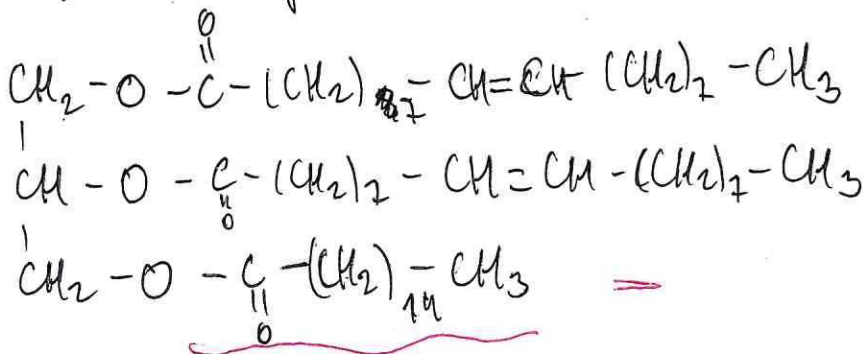 O
||
CH₂ - O - C - (CH₂)₇ - CH = CH (CH₂)₇ - CH₃
|
CH - O - C - (CH₂)₇ - CH = CH - (CH₂)₇ - CH₃
||
O
|
CH₂ - O - C - (CH₂)₁₄ - CH₃ =
||
O